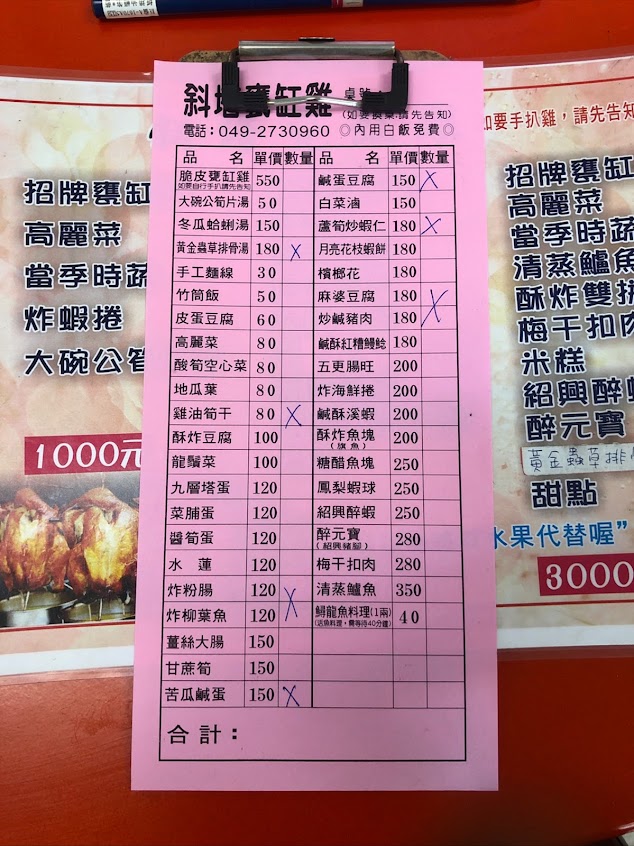 斜塔甕缸雞 桌號：
(如要換菜請先告知)
電話：049-2730960 ◎內用白飯免費◎
品 名 單價 數量 品 名 單價 數量
脆皮甕缸雞 550 鹹蛋豆腐 150 X
如要自行手扒請先告知
大碗公筍片湯 50 白菜滷 150
冬瓜蛤蜊湯 150 蘆筍炒蝦仁 180 X
黃金蟲草排骨湯 180 X 月亮花枝蝦餅 180
手工麵線 30 檳榔花 180
竹筒飯 50 麻婆豆腐 180 X
皮蛋豆腐 60 炒鹹豬肉 180
高麗菜 80 鹹酥紅糟鰻魿 180
酸筍空心菜 80 五更腸旺 200
地瓜葉 80 炸海鮮捲 200
雞油筍干 80 X 鹹酥溪蝦 200
酥炸豆腐 100 酥炸魚塊 200
(旗魚)
龍鬚菜 100 糖醋魚塊 250
九層塔蛋 120 鳳梨蝦球 250
菜脯蛋 120 紹興醉蝦 250
醬筍蛋 120 醉元寶 280
(紹興豬腳)
水 蓮 120 梅干扣肉 280
炸粉腸 120 X 清蒸鱸魚 350
炸柳葉魚 120 鱘龍魚料理(1兩) 40
(活魚料理，需等待40分鐘)
薑絲大腸 150
甘蔗筍 150
苦瓜鹹蛋 150 X
合計：
招牌甕缸
高麗菜
當季時蔬
炸蝦捲
大碗公筍
1000元
如要手扒雞，請先告知
招牌甕缸
高麗菜
當季時蔬
清蒸鱸魚
酥炸雙拼
梅干扣肉
米糕
紹興醉蝦
醉元寶
黃金蟲草排骨
甜點
水果代替喔"
3000